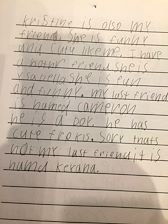 kristine is also my
friend. She is funny
and cute like me. I have
a nother friend she is
she is fun
and funny. my last friend
is named cameron
he is a boy. he has
cute . Sory thats
not my last friend it is
named